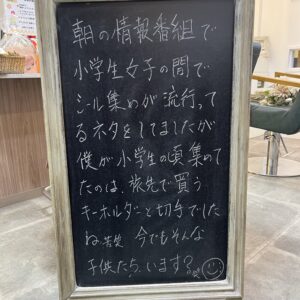 朝の情報番組で
小学生女子の間で
シール集めが流行って
るネタをしてましたが
僕が小学生の頃集めて
たのは、旅先で買う
キーホルダーと切手でした
ね苦笑 今でもそんな
子供たち、います?